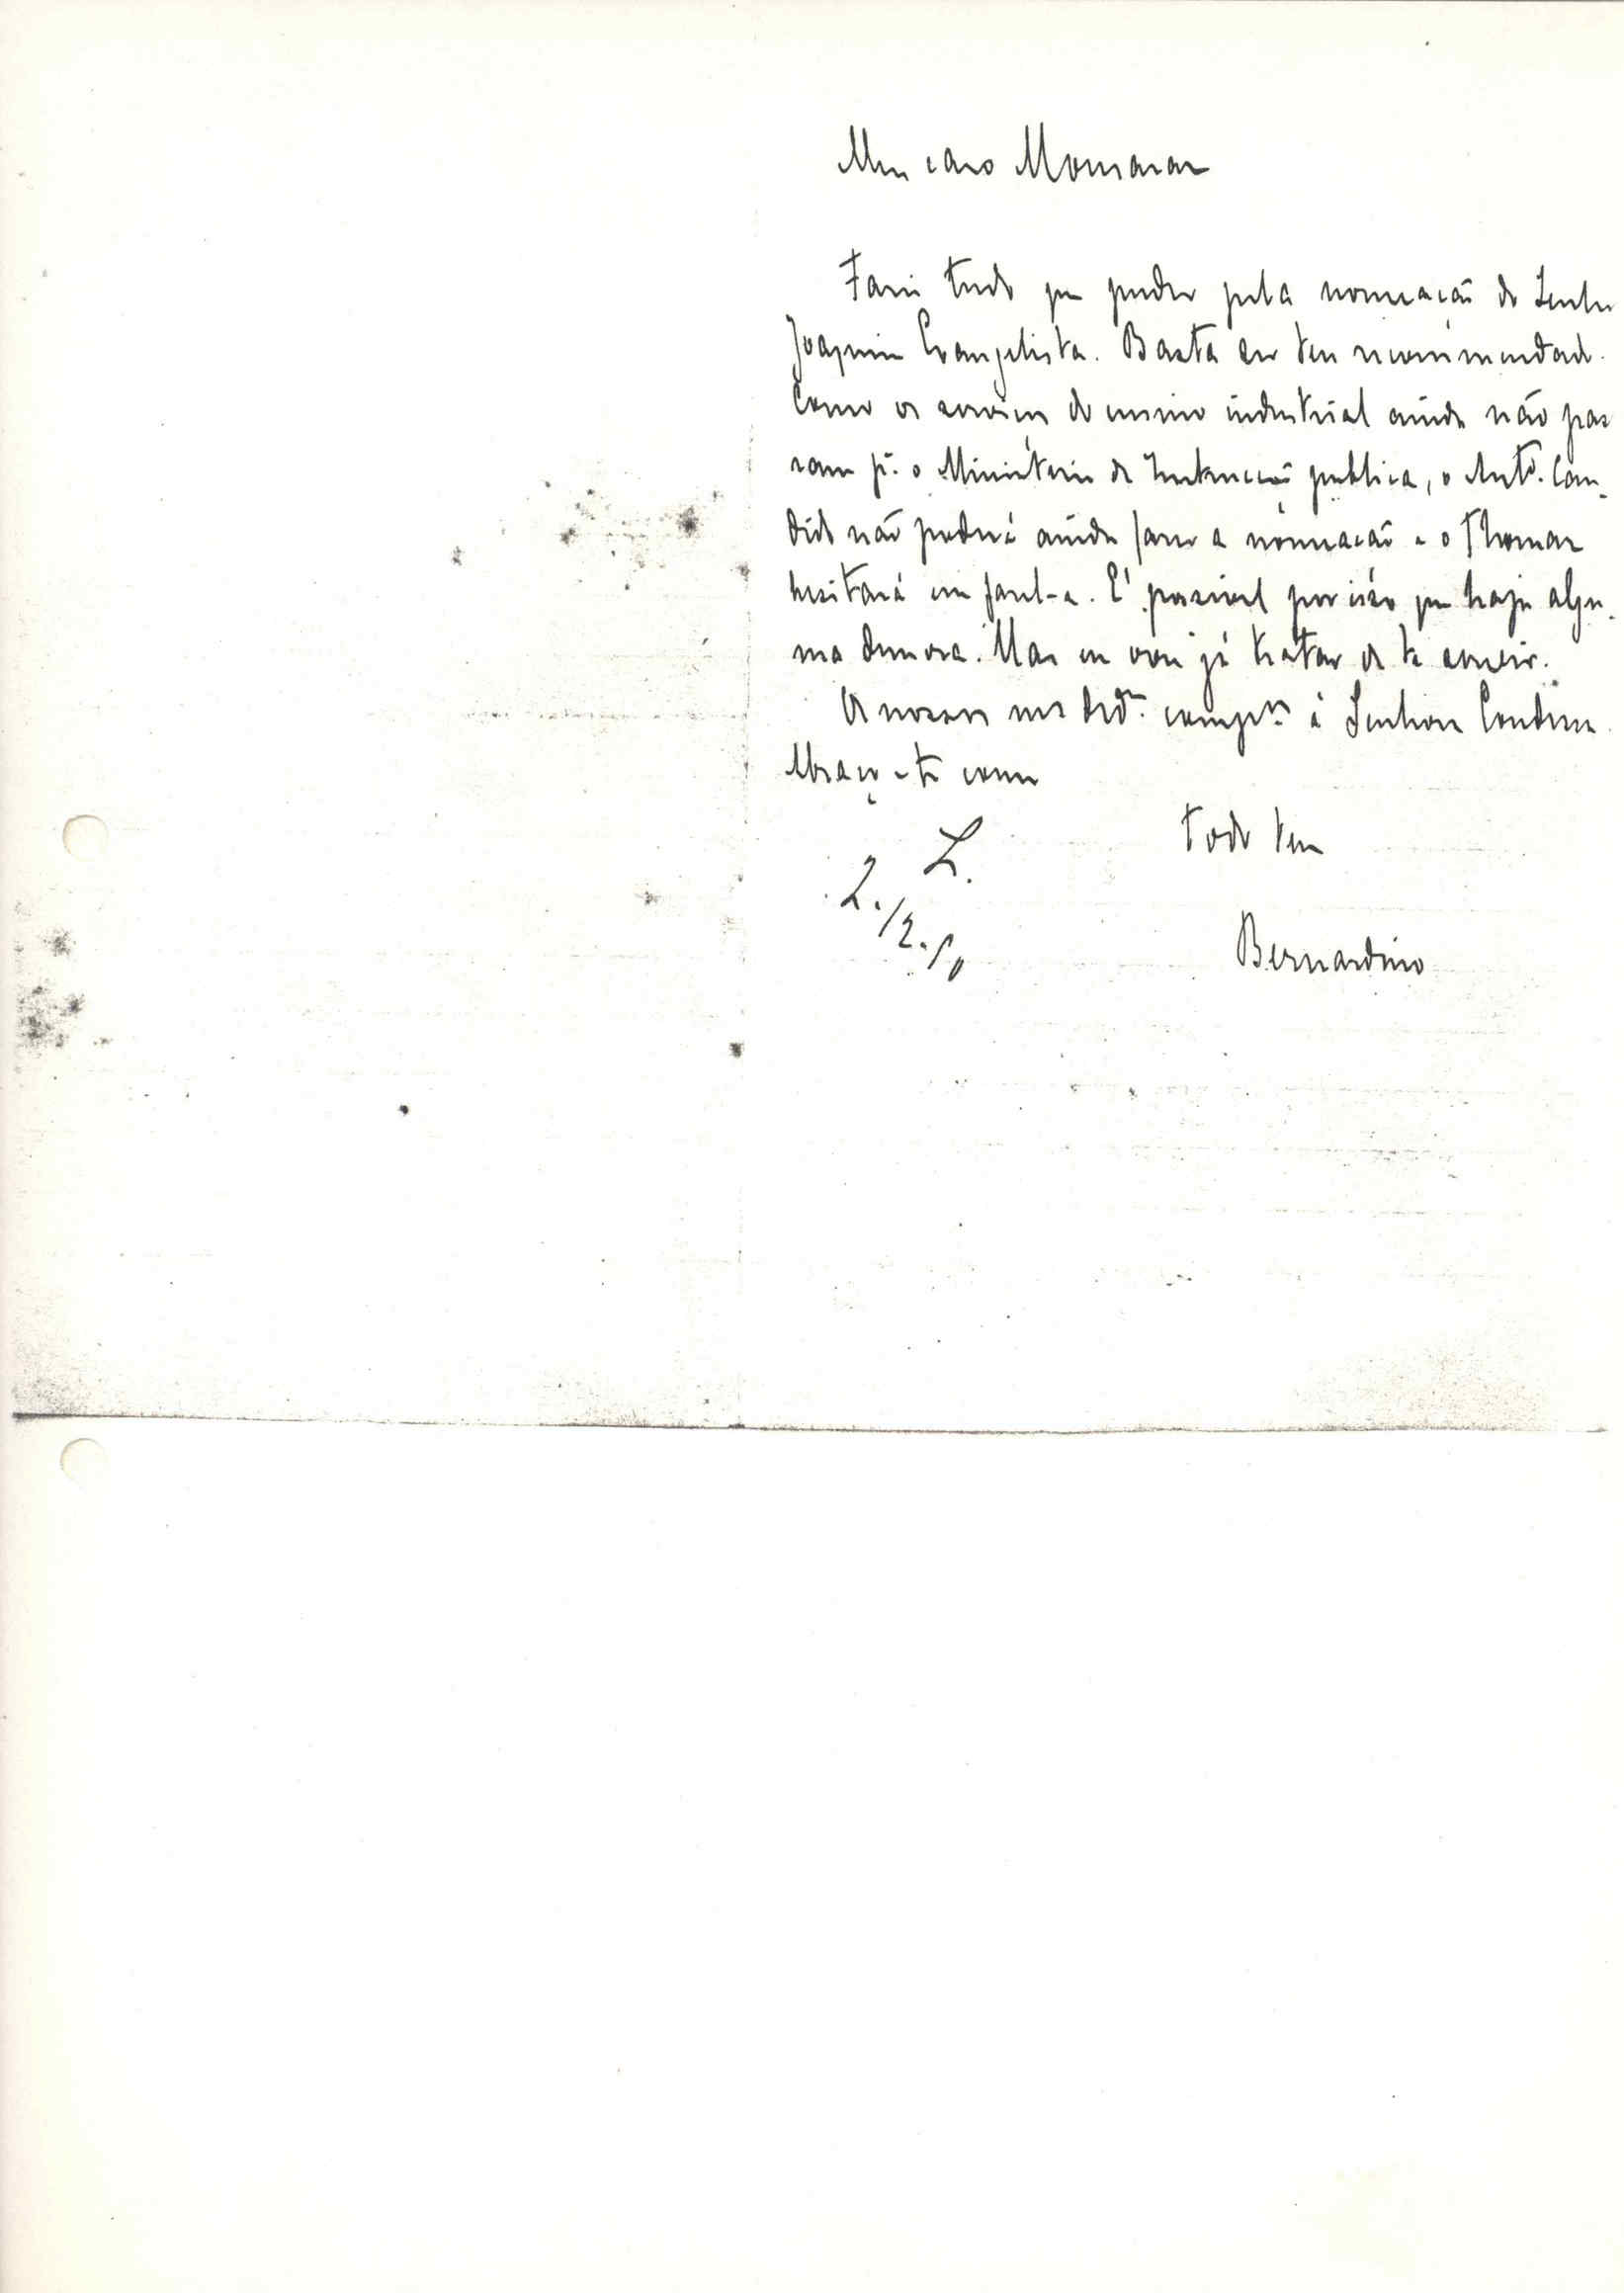 Meu caro Monsaraz
Farei tudo que puder pela nomeação do Senhor
Joaquim Evangelista. Basta ser teu recommendado.
Como os serviços do ensino industrial ainda não pas
saram pª. o Ministerio da Instrucção publica, o Antº. Can-
dido não poderá ainda fazer a nomeação e o Thomaz
hesitará em fazel-a. É possivel por isso que haja algu-
ma demora. Mas eu vou já tratar de te servir.
Os nossos compᵗᵒˢ á Senhora Condessa.
Abraço-te como
todo teu
L.
2./2.90
Bernardino